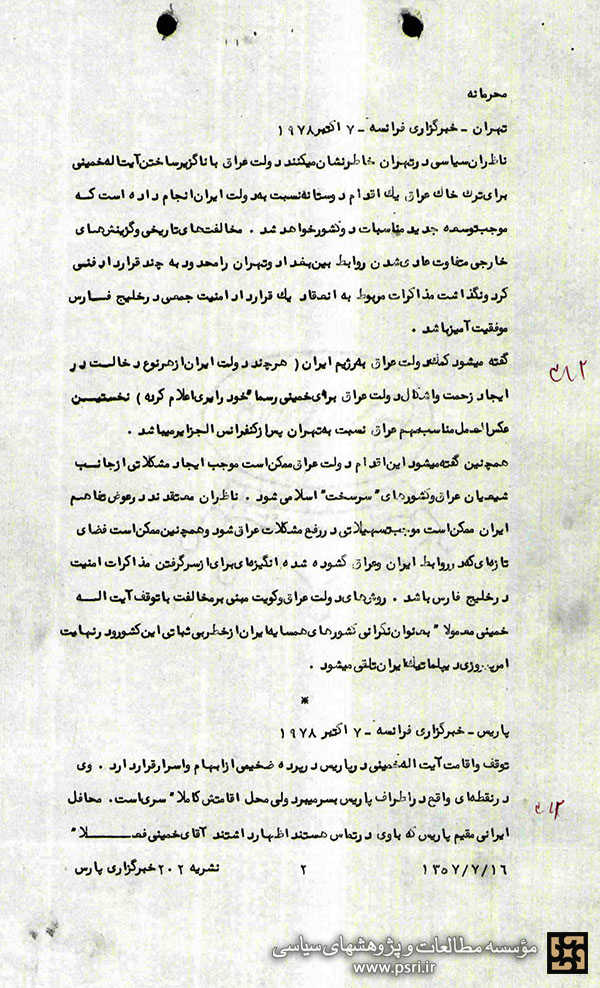 محرمانه
تهران - خبرگزاری فرانسه - ۷ اکتبر ۱۹۷۸
ناظران سیاسی در تهران خاطرنشان میکنند دولت عراق با ناگزیر ساختن آیت اله خمینی
برای ترک خاک عراق یک اقدام دوستانه نسبت به دولت ایران انجام داده است که
موجب توسعه جدید مناسبات دو کشور خواهد شد . مخالفت های تاریخی و گزینش های
خارجی متفاوت عادی شدن روابط بین بغداد و تهران را محدود به چند قرارداد فنی
کرد و نگذاشت مذاکرات مربوط به انعقاد یک قرارداد امنیت جمعی در خلیج فارس
موفقیت آمیز باشد .
گفته میشود کمک دولت عراق به رژیم ایران ( هر چند دولت ایران از هر نوع دخالت در
ایجاد زحمت و اشکال دولت عراق برای خمینی رسما" خود را بری اعلام کرده ) نخستین
عکس العمل مناسب مهم عراق نسبت به تهران پس از کنفرانس الجزایر میباشد .
همچنین گفته میشود این اقدام دولت عراق ممکن است موجب ایجاد مشکلاتی از جانب
شیعیان عراق و کشورهای "سرسخت" اسلامی شود . ناظران معتقدند در عوض تفاهم
ایران ممکن است موجب تسهیلاتی در رفع مشکلات عراق شود و همچنین ممکن است فضای
تازه ای که در روابط ایران و عراق گشوده شده انگیزه ای برای از سر گرفتن مذاکرات امنیت
در خلیج فارس باشد . روش های دولت عراق و کویت مبنی بر مخالفت با توقف آیت اله
خمینی معمولا" به عنوان نگرانی کشورهای همسایه ایران از خطر بی ثباتی این کشور و در نهایت
امر پیروزی دیپلماتیک ایران تلقی میشود .
*
پاریس - خبرگزاری فرانسه - ۷ اکتبر ۱۹۷۸
توقف و اقامت آیت اله خمینی در پاریس در پرده ضخیمی از ابهام و اسرار قرار دارد . وی
در نقطه ای واقع در اطراف پاریس بسر میبرد ولی محل اقامتش کاملا" سری است . محافل
ایرانی مقیم پاریس که با وی در تماس هستند اظهار داشتند آقای خمینی فعلا"
۱۳۵۷/۷/۱۶ ۲ نشریه ۲۰۲ خبرگزاری پارس
مؤسسه مطالعات و پژوهشهای سیاسی
www.psri.ir